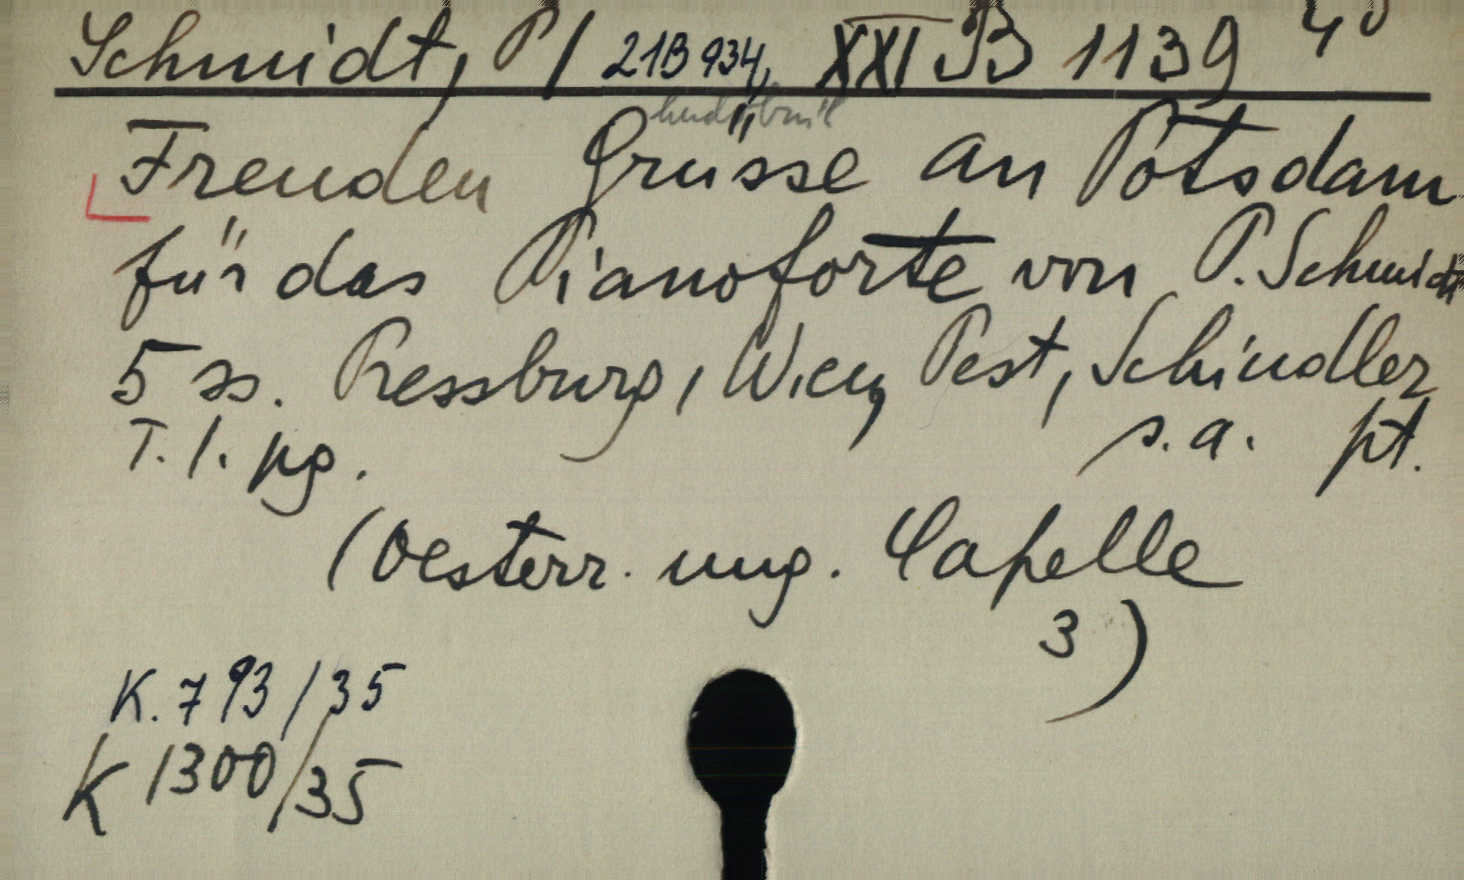 Schmidt, P/ 21B 934, XXI B 1139 4°
hudobnik
Freuden Grüsse an Potsdam
für das Pianoforte von P. Schmidt
5 ss. Pressburg, Wien, Pest, Schindler
T. l. pg. s.a. pt.
(Oesterr. ung. Capelle
3)
K. 793/35
K 1300/35